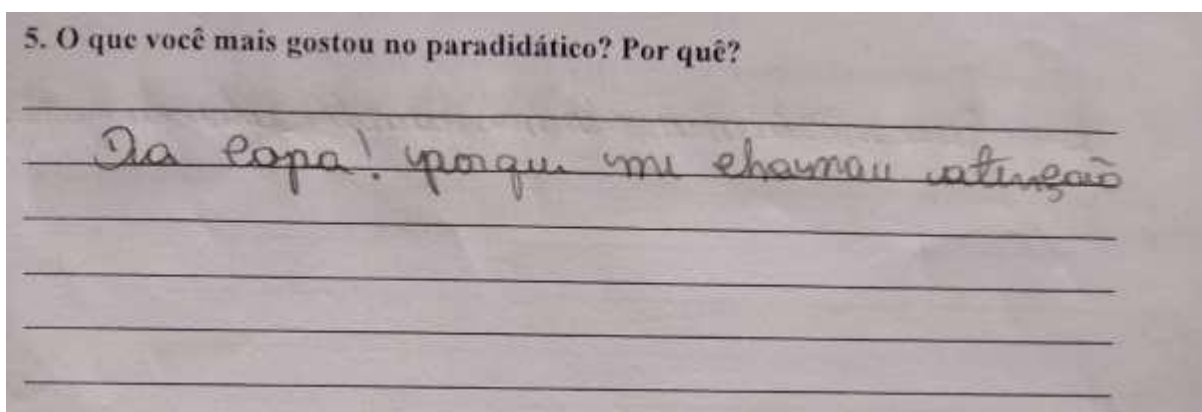 5. O que você mais gostou no paradidático? Por quê?
Da capa! porque me chamou atenção